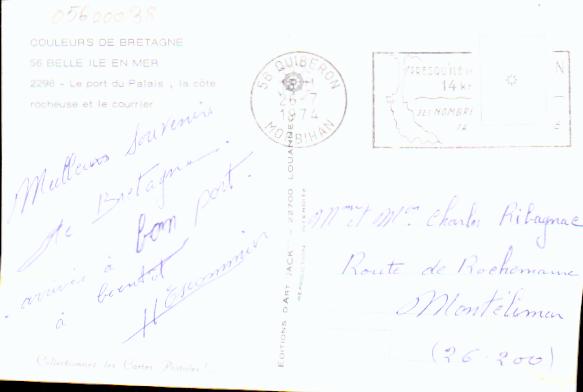 05600038
COULEURS DE BRETAGNE
56 BELLE ILE EN MER
2296 - Le port du Palais, la côte
rocheuse et le courrier
56 QUIBERON
26-7
1974
MORBIHAN
PRESQU'ILE
14 K
NOMBRE
Meilleurs souvenirs
de Bretagne.
arrivés à bon port.
à bientôt
EDITIONS D'ART JACK - 22700 LOUANNEC
REPRODUCTION INTERDITE
Mme et Mr. Charles Ribagnac
Route de Rochemaure
Montélimar
(26.200)
Collectionnez les Cartes Postales !..